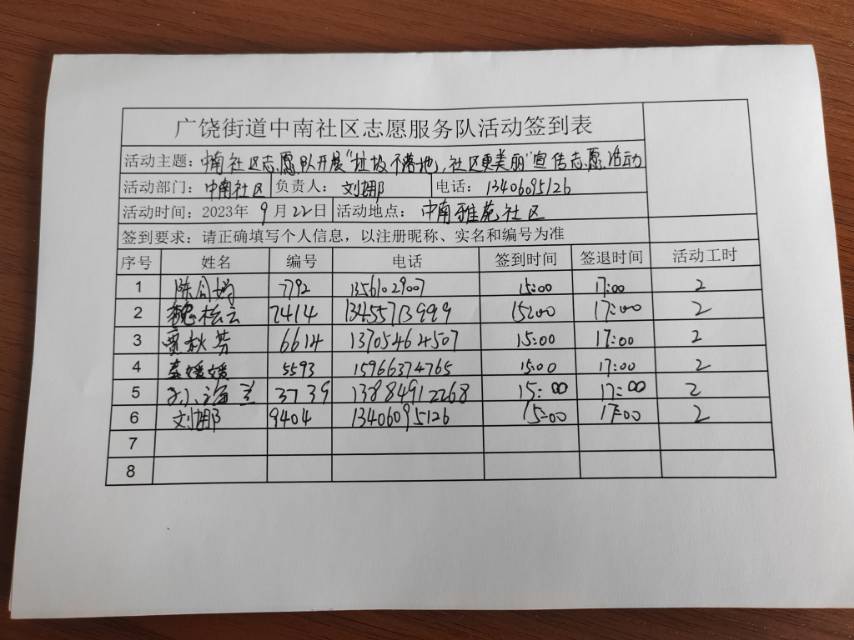 广饶街道中南社区志愿服务队活动签到表
活动主题：中南社区志愿队开展"垃圾不落地，社区更美丽"宣传志愿活动
活动部门：中南社区 负责人：刘娜 电话：13406095126
活动时间：2023年9月22日 活动地点：中南雅苑社区
签到要求：请正确填写个人信息，以注册昵称、实名和编号为准
序号 姓名 编号 电话 签到时间 签退时间 活动工时
1 陈月娟 7792 13561029007 15:00 17:00 2
2 魏桂云 7414 13455713999 15:00 17:00 2
3 贾秋芳 6614 13705464507 15:00 17:00 2
4 媛媛 5593 15966374765 15:00 17:00 2
5 孙海兰 3739 13884912268 15:00 17:00 2
6 刘娜 9404 13406095126 15:00 17:00 2
7
8